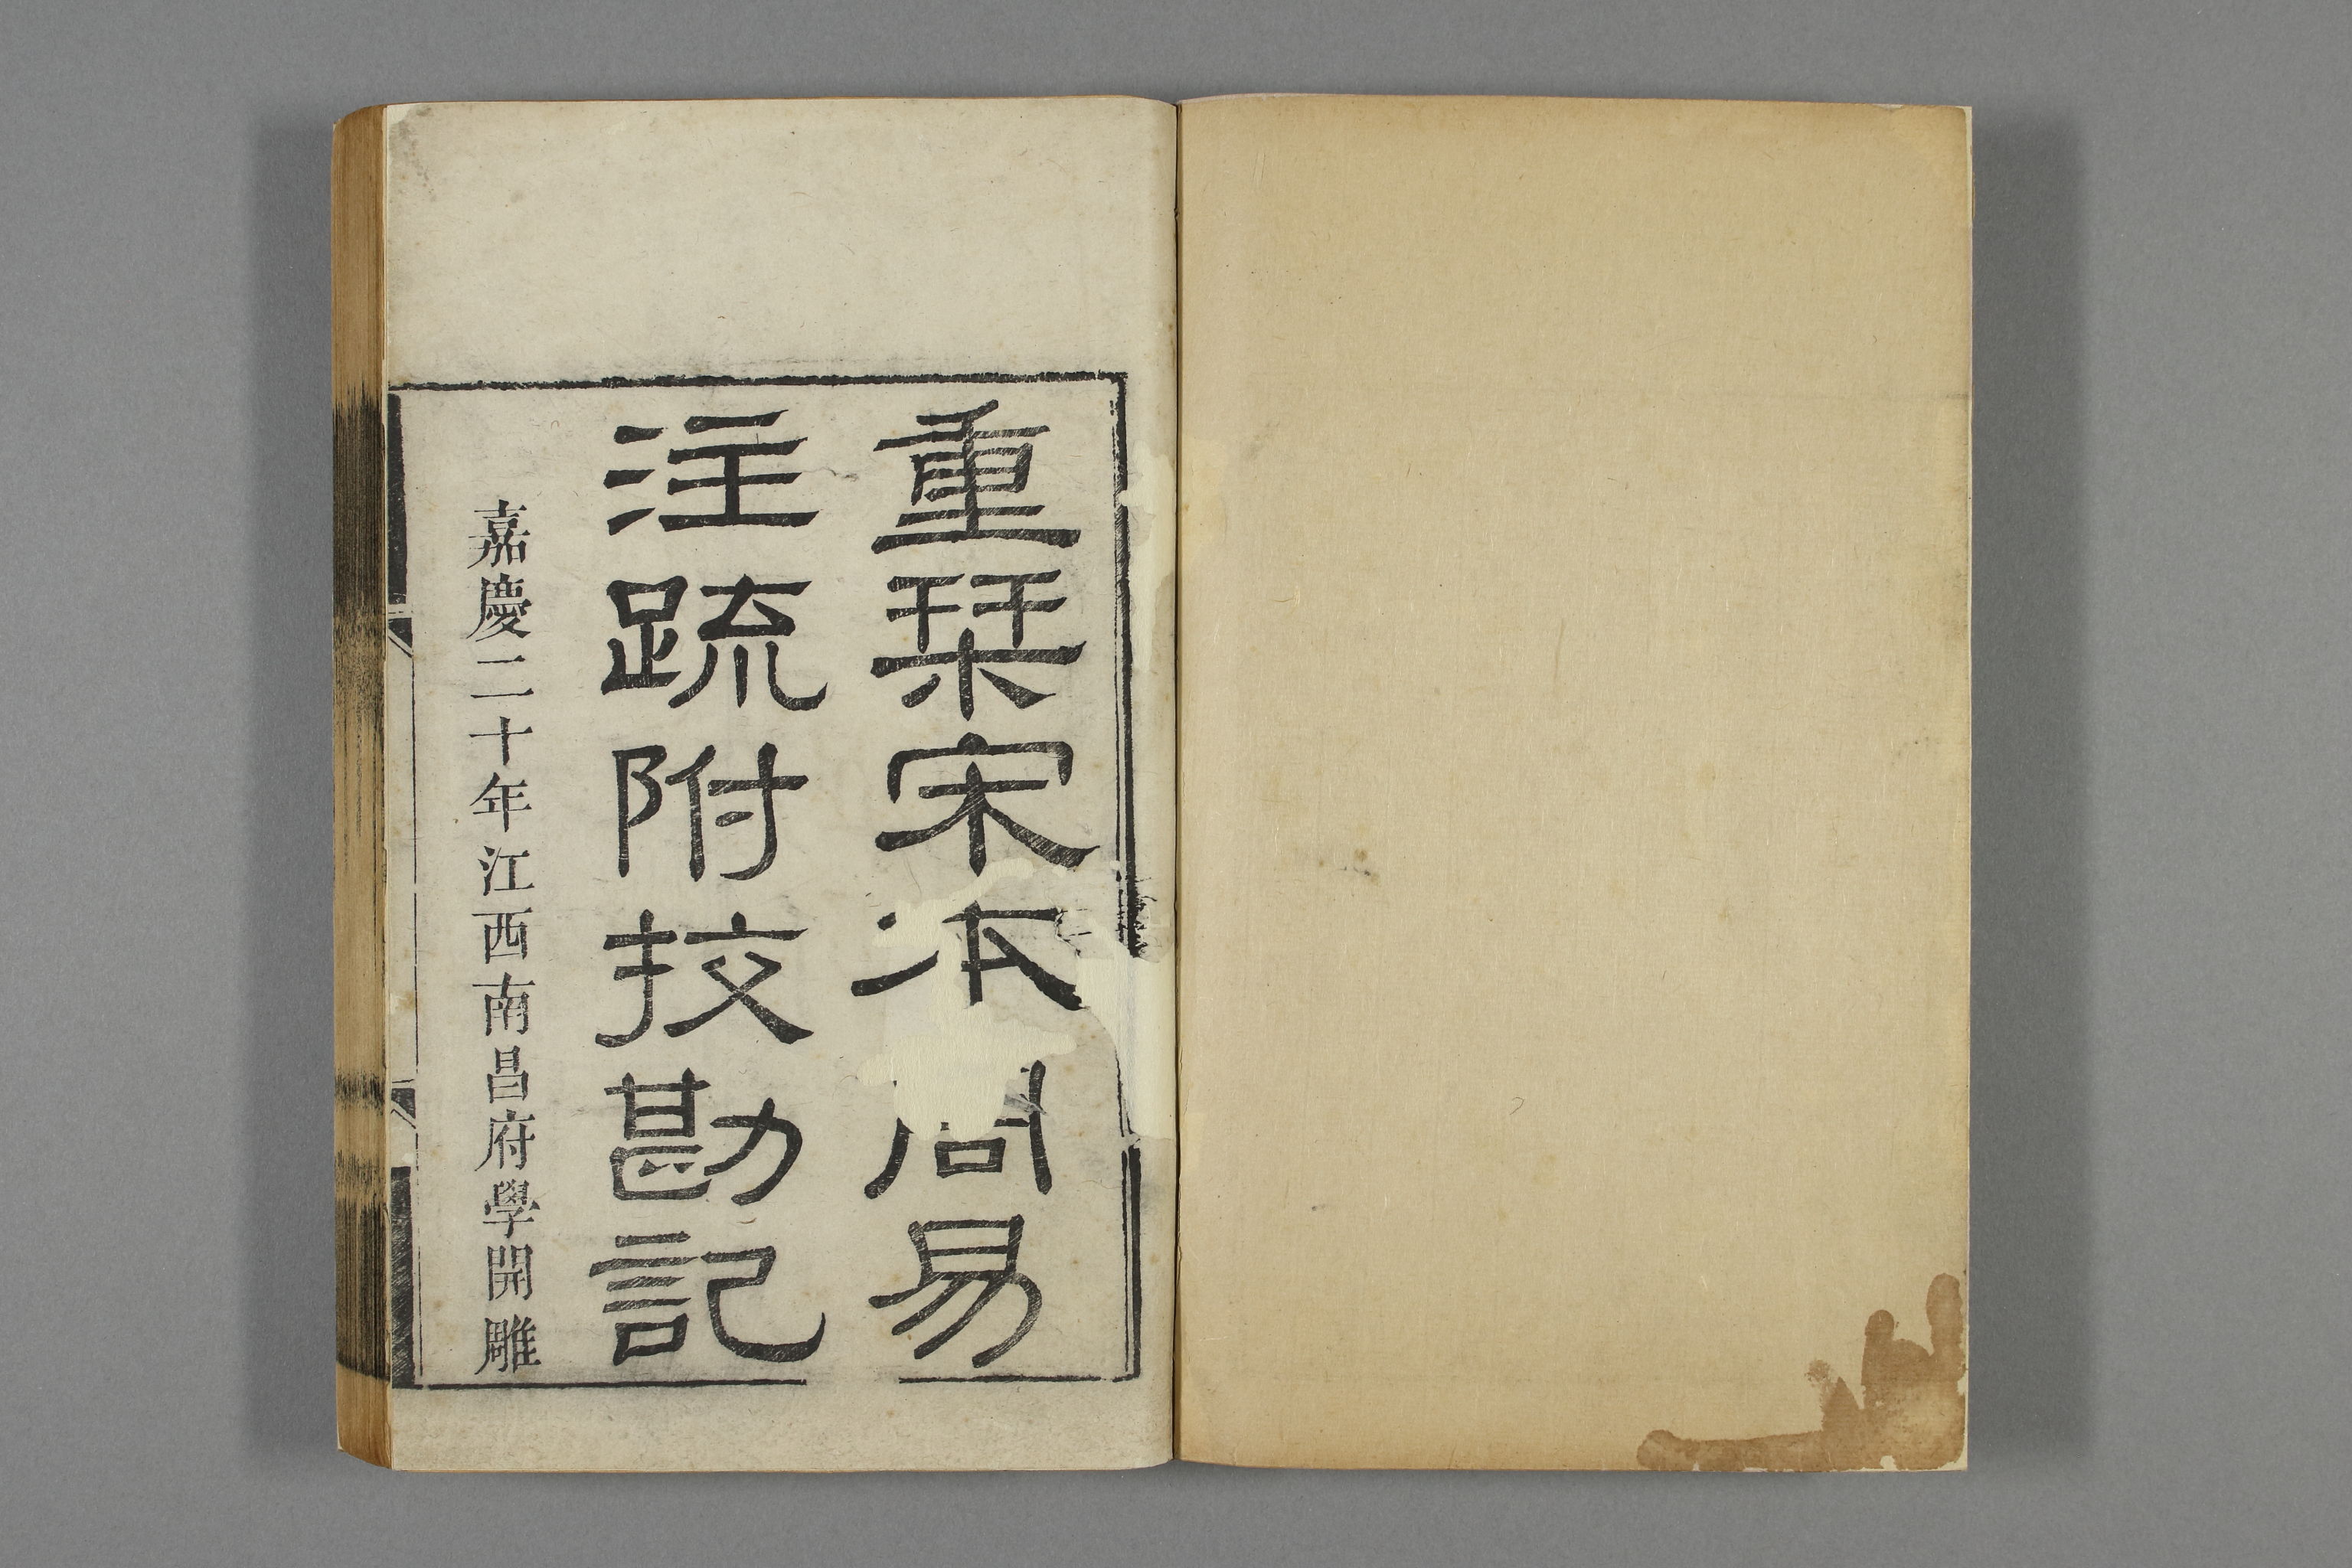 重栞宋本周易
注疏附挍勘記
嘉慶二十年江西南昌府學開雕